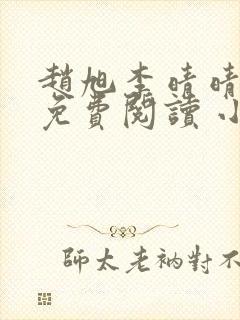 趙旭李晴晴
免費閱讀小
師太老衲對不